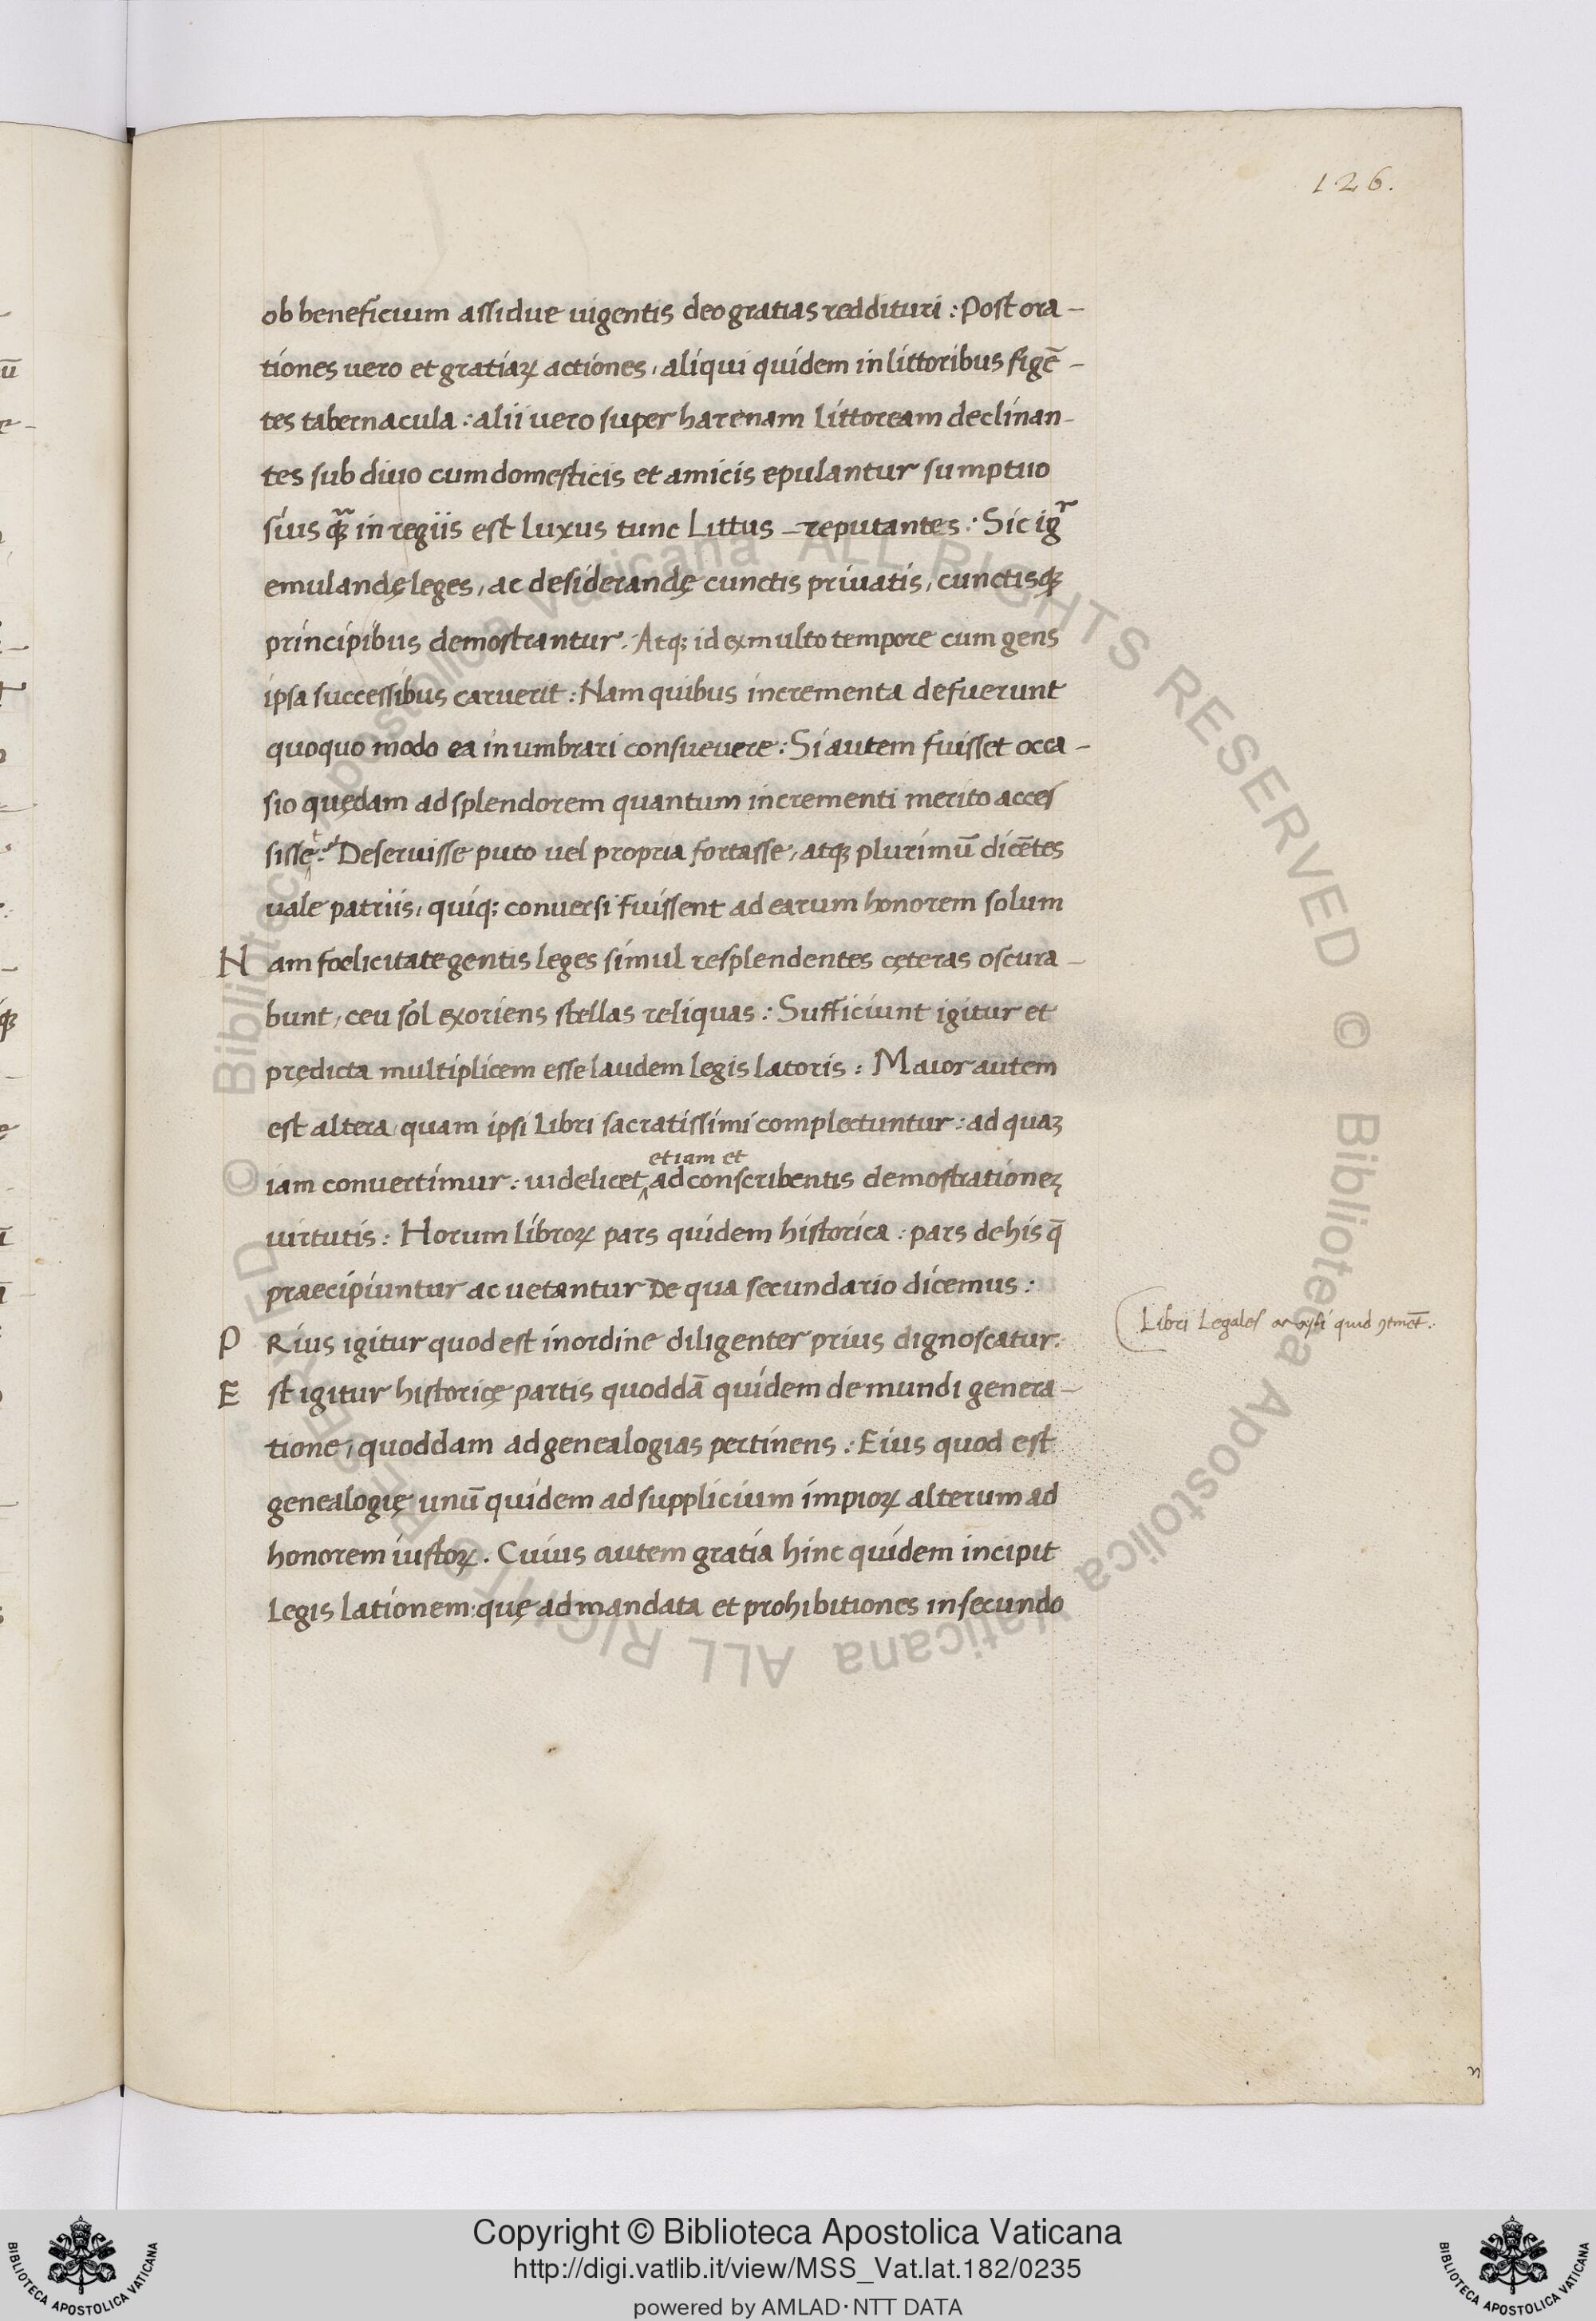 126.
ob beneficium assidue uigentis deo gratias reddituri : Post ora –
tiones uero et gratiaꝝ actiones, aliqui quidem in littoribus figē –
tes tabernacula : alii uero super harenam littoream declinan –
tes sub diuo cum domesticis et amicis epulantur sumptuo
sius qꝫ in regiis est luxus tunc Littus – reputantes : Sic igʳ
emulandę leges, ac desiderandę cunctis priuatis, cunctisqꝫ
principibus demostrantur. Atqꝫ id ex multo tempore cum gens
ipsa successibus caruerit : Nam quibus incrementa defuerunt
quoquo modo ea inumbrari consueuere : Si autem fuisset occa –
sio quędam ad splendorem quantum incrementi merito acces
sisset : Deseruisse puto uel propria fortasse, atqꝫ plurimū dicētes
uale patriis, quiqꝫ conuersi fuissent ad earum honorem solum
Nam foelicitate gentis leges simul resplendentes cęteras oscura –
bunt, ceu sol exoriens stellas reliquas : Sufficiunt igitur et
prędicta multiplicem esse laudem legis latoris : Maior autem
est altera quam ipsi Libri sacratissimi complectuntur : ad quaꝫ
etiam et
iam conuertimur : uidelicet ‸ ad conscribentis demostrationeꝫ
uirtutis : Horum libroꝝ pars quidem historica : pars de his q̄
praecipiuntur ac uetantur De qua secundario dicemus :
PRius igitur quod est in ordine diligenter prius dignoscatur.
Libri Legales quid
Est igitur historicę partis quoddā quidem de mundi genera –
tione, quoddam ad genealogias pertinens : Eius quod est
genealogię unū quidem ad supplicium impioꝝ alterum ad
honorem iustoꝝ. Cuius autem gratia hinc quidem incipit
Legis lationem : quę ad mandata et prohibitiones in secundo
Copyright © Biblioteca Apostolica Vaticana
http://digi.vatlib.it/view/MSS_Vat.lat.182/0235
powered by AMLAD·NTT DATA
BIBLIOTECA APOSTOLICA VATICANA
BIBLIOTECA APOSTOLICA VATICANA